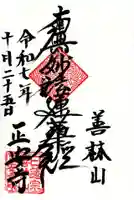 善林山
南無妙法蓮華経
令和七年
十月二十五日
正安寺